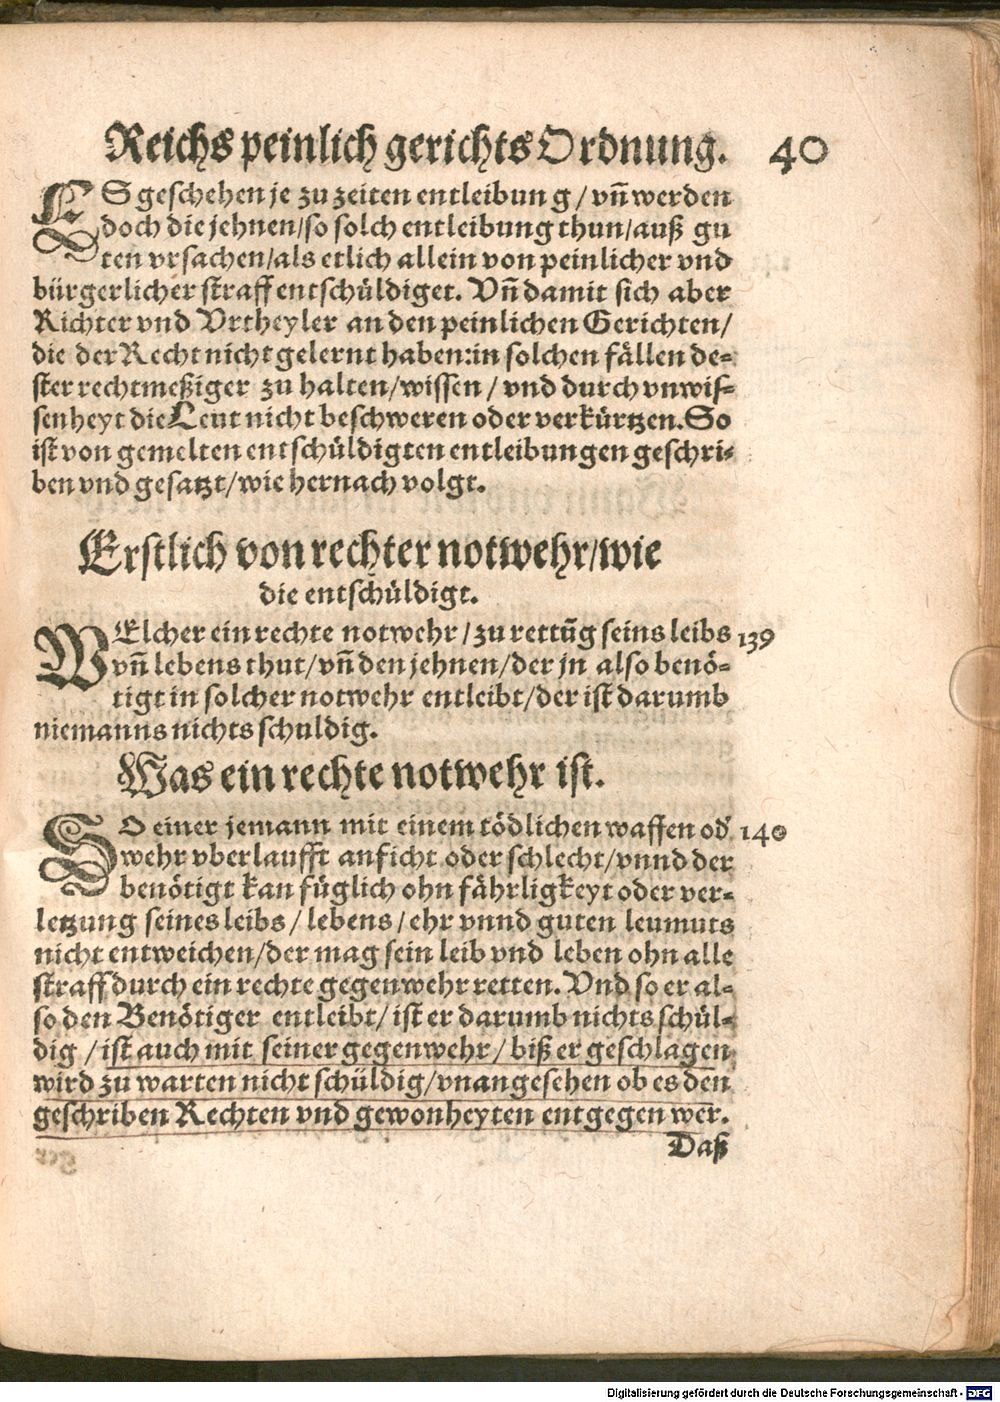 Reichs peinlich gerichts Ordnung. 40
ES geschehen je zu zeiten entleibung / vñ werden
doch die jehnen/so solch entleibung thun/auß gu
ten vrsachen/als etlich allein von peinlicher vnd
bürgerlicher straff entschüldiget. Vñ damit sich aber
Richter vnd Vrtheyler an den peinlichen Gerichten/
die der Recht nicht gelernt haben:in solchen fällen de-
ster rechtmeßiger zu halten/wissen / vnd durch vnwis-
senheyt die Leut nicht beschweren oder verkürtzen. So
ist von gemelten entschüldigten entleibungen geschri-
ben vnd gesatzt/wie hernach volgt.
Erstlich von rechter notwehr/wie
die entschüldigt.
WElcher ein rechte notwehr / zu rettũg seins leibs 139
vñ lebens thut/vñ den jehnen/der jn also benö-
tigt in solcher notwehr entleibt/der ist darumb
niemanns nichts schuldig.
Was ein rechte notwehr ist.
SO einer jemann mit einem tödlichen waffen od' 140
wehr vberlaufft anficht oder schlecht/vnnd der
benötigt kan füglich ohn fährligkeyt oder ver-
letzung seines leibs / lebens / ehr vnnd guten leumuts
nicht entweichen/der mag sein leib vnd leben ohn alle
straff durch ein rechte gegenwehr retten. Vnd so er al-
so den Benötiger entleibt/ ist er darumb nichts schül-
dig / ist auch mit seiner gegenwehr / biß er geschlagen
wird zu warten nicht schüldig/vnangesehen ob es den
geschriben Rechten vnd gewonheyten entgegen wer.
Daß
Digitalisierung gefördert durch die Deutsche Forschungsgemeinschaft - DFG